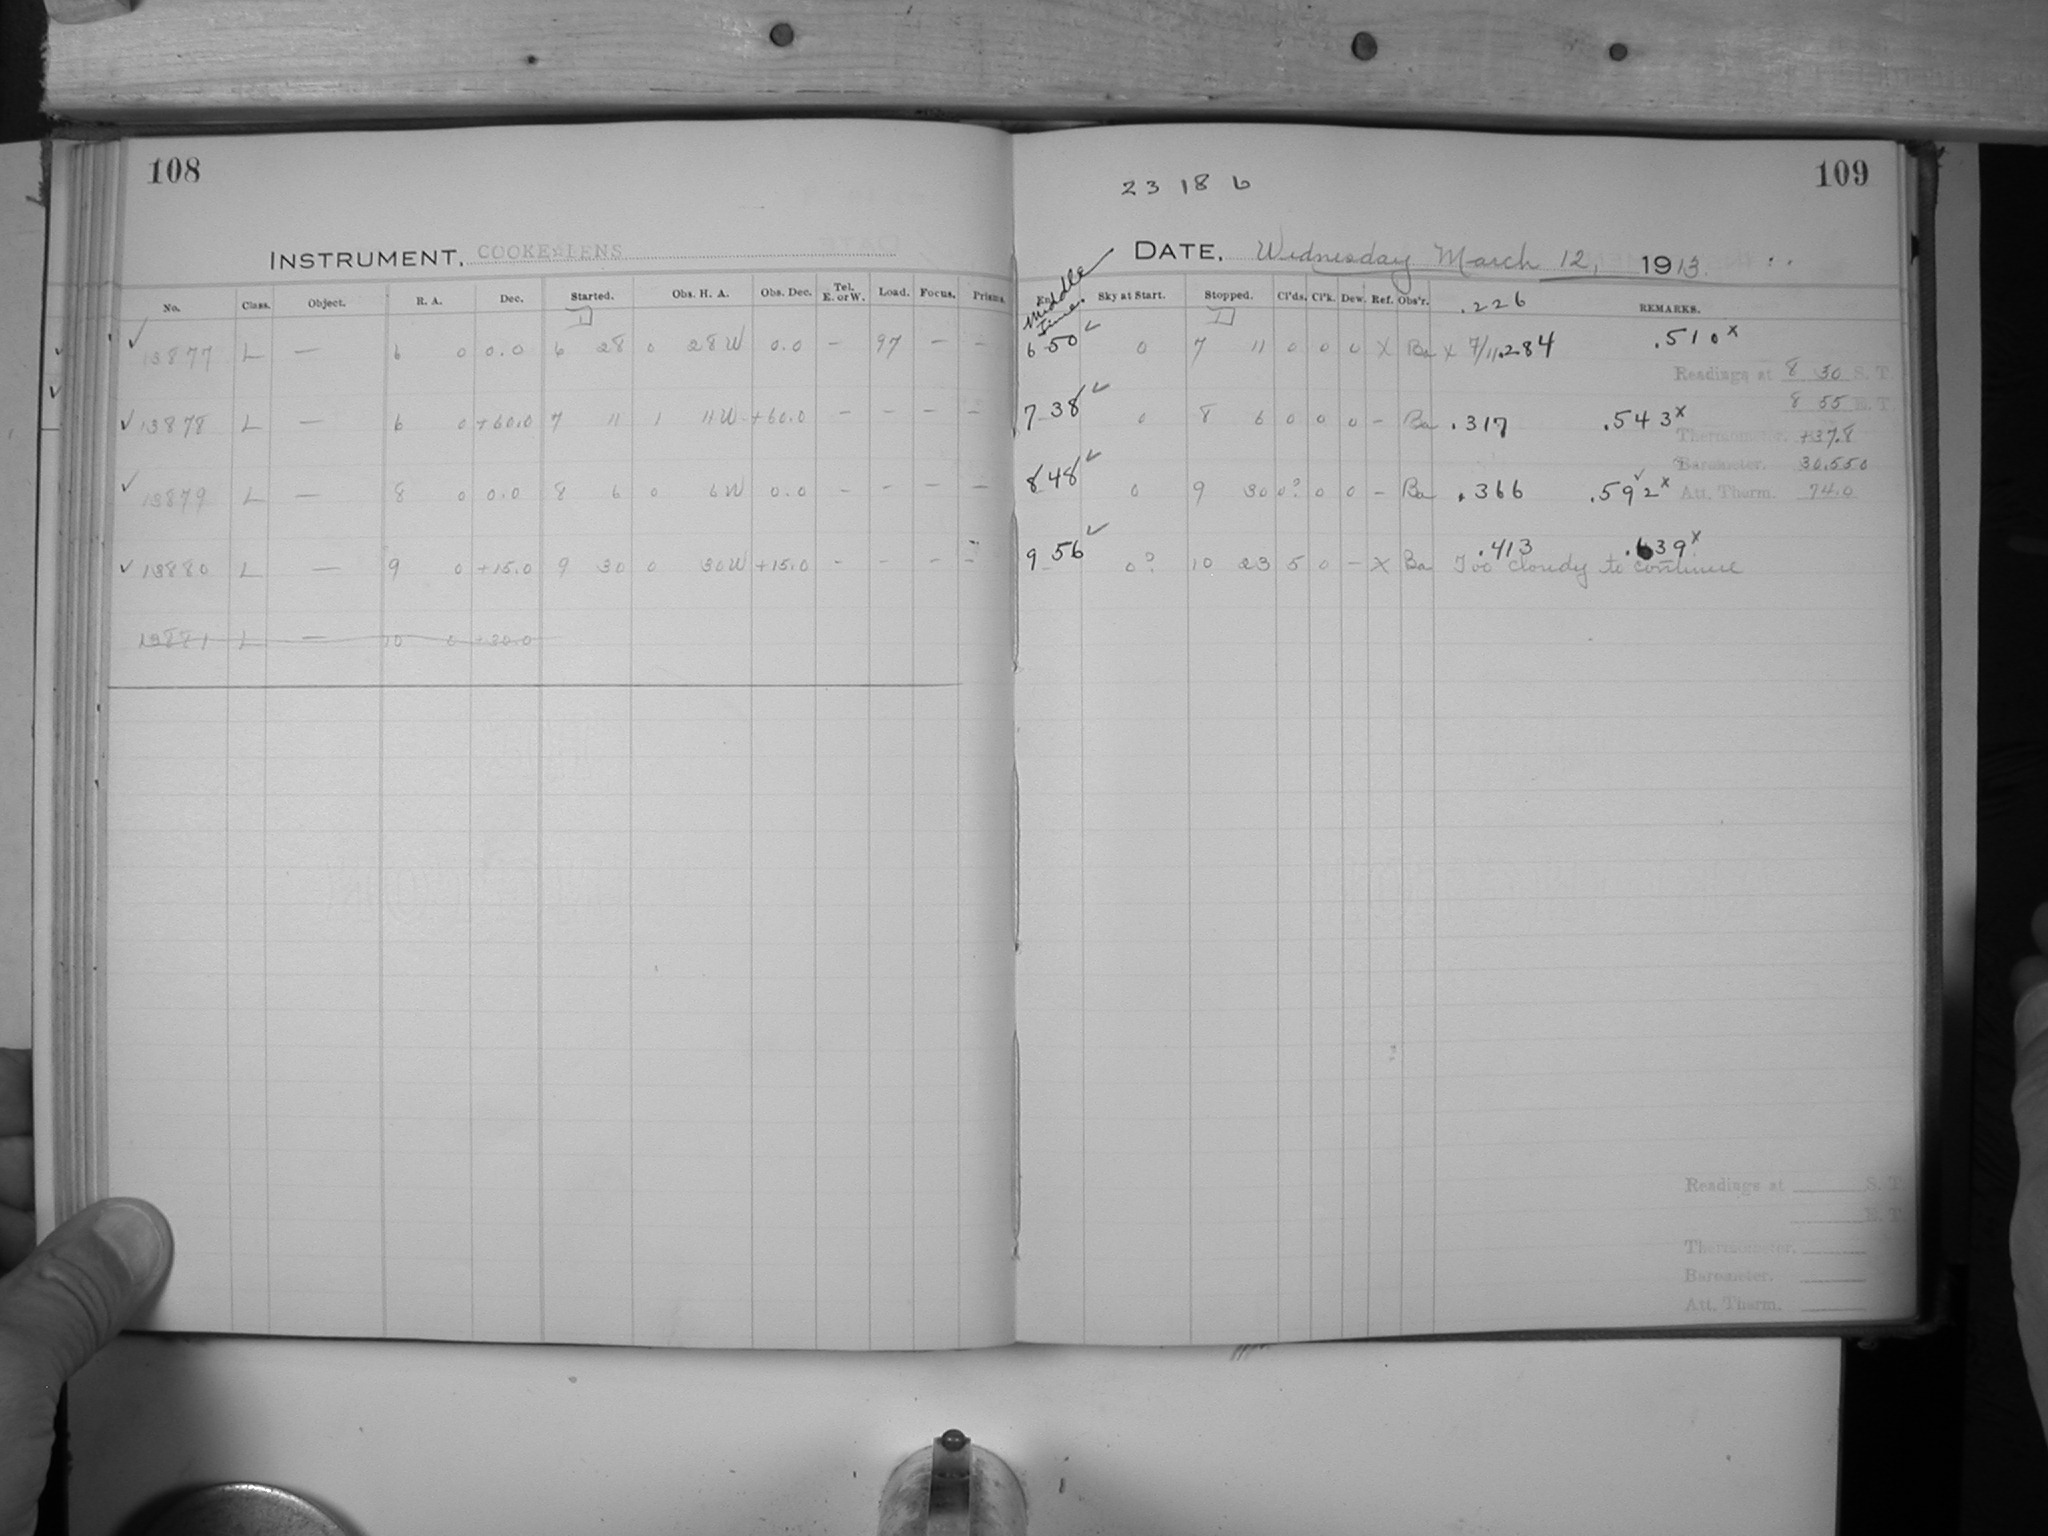 108
INSTRUMENT. COOKE LENS
No. Class. Object. R. A. Dec. Started. Obs. H. A. Obs. Dec. Tel. E. or W. Load. Focus. Prisms.
13877 L — 6 0 0.0 6 28 0 28W 0.0 – 97 – –
13878 L — 6 0 +60.0 7 11 1 11W +60.0 – – – –
13879 L — 8 0 0.0 8 6 0 6W 0.0 – – – –
13880 L — 9 0 +15.0 9 30 0 30W +15.0 – – – –
13881 L — 10 0 +30.0
109
23 18 6
DATE. Wednesday March 12, 1913.
Middle Time. Sky at Start. Stopped. Cl'ds. Cl'k. Dew. Ref. Obs'r. .226 REMARKS.
6 50 0 7 11 0 0 0 X Ba x 7/11 .284 .510 x
Readings at 8 30 S. T.
8 55 E. T.
7 38 0 8 6 0 0 0 – Ba .317 .543 x
Thermometer. +37.8
Barometer. 30.550
8 48 0 9 30 0? 0 0 – Ba .366 .592 x
Att. Therm. 74.0
9 56 0? 10 23 5 0 – X Ba .413 .639 x
Too cloudy to continue
Readings at S. T.
E. T.
Thermometer.
Barometer.
Att. Therm.